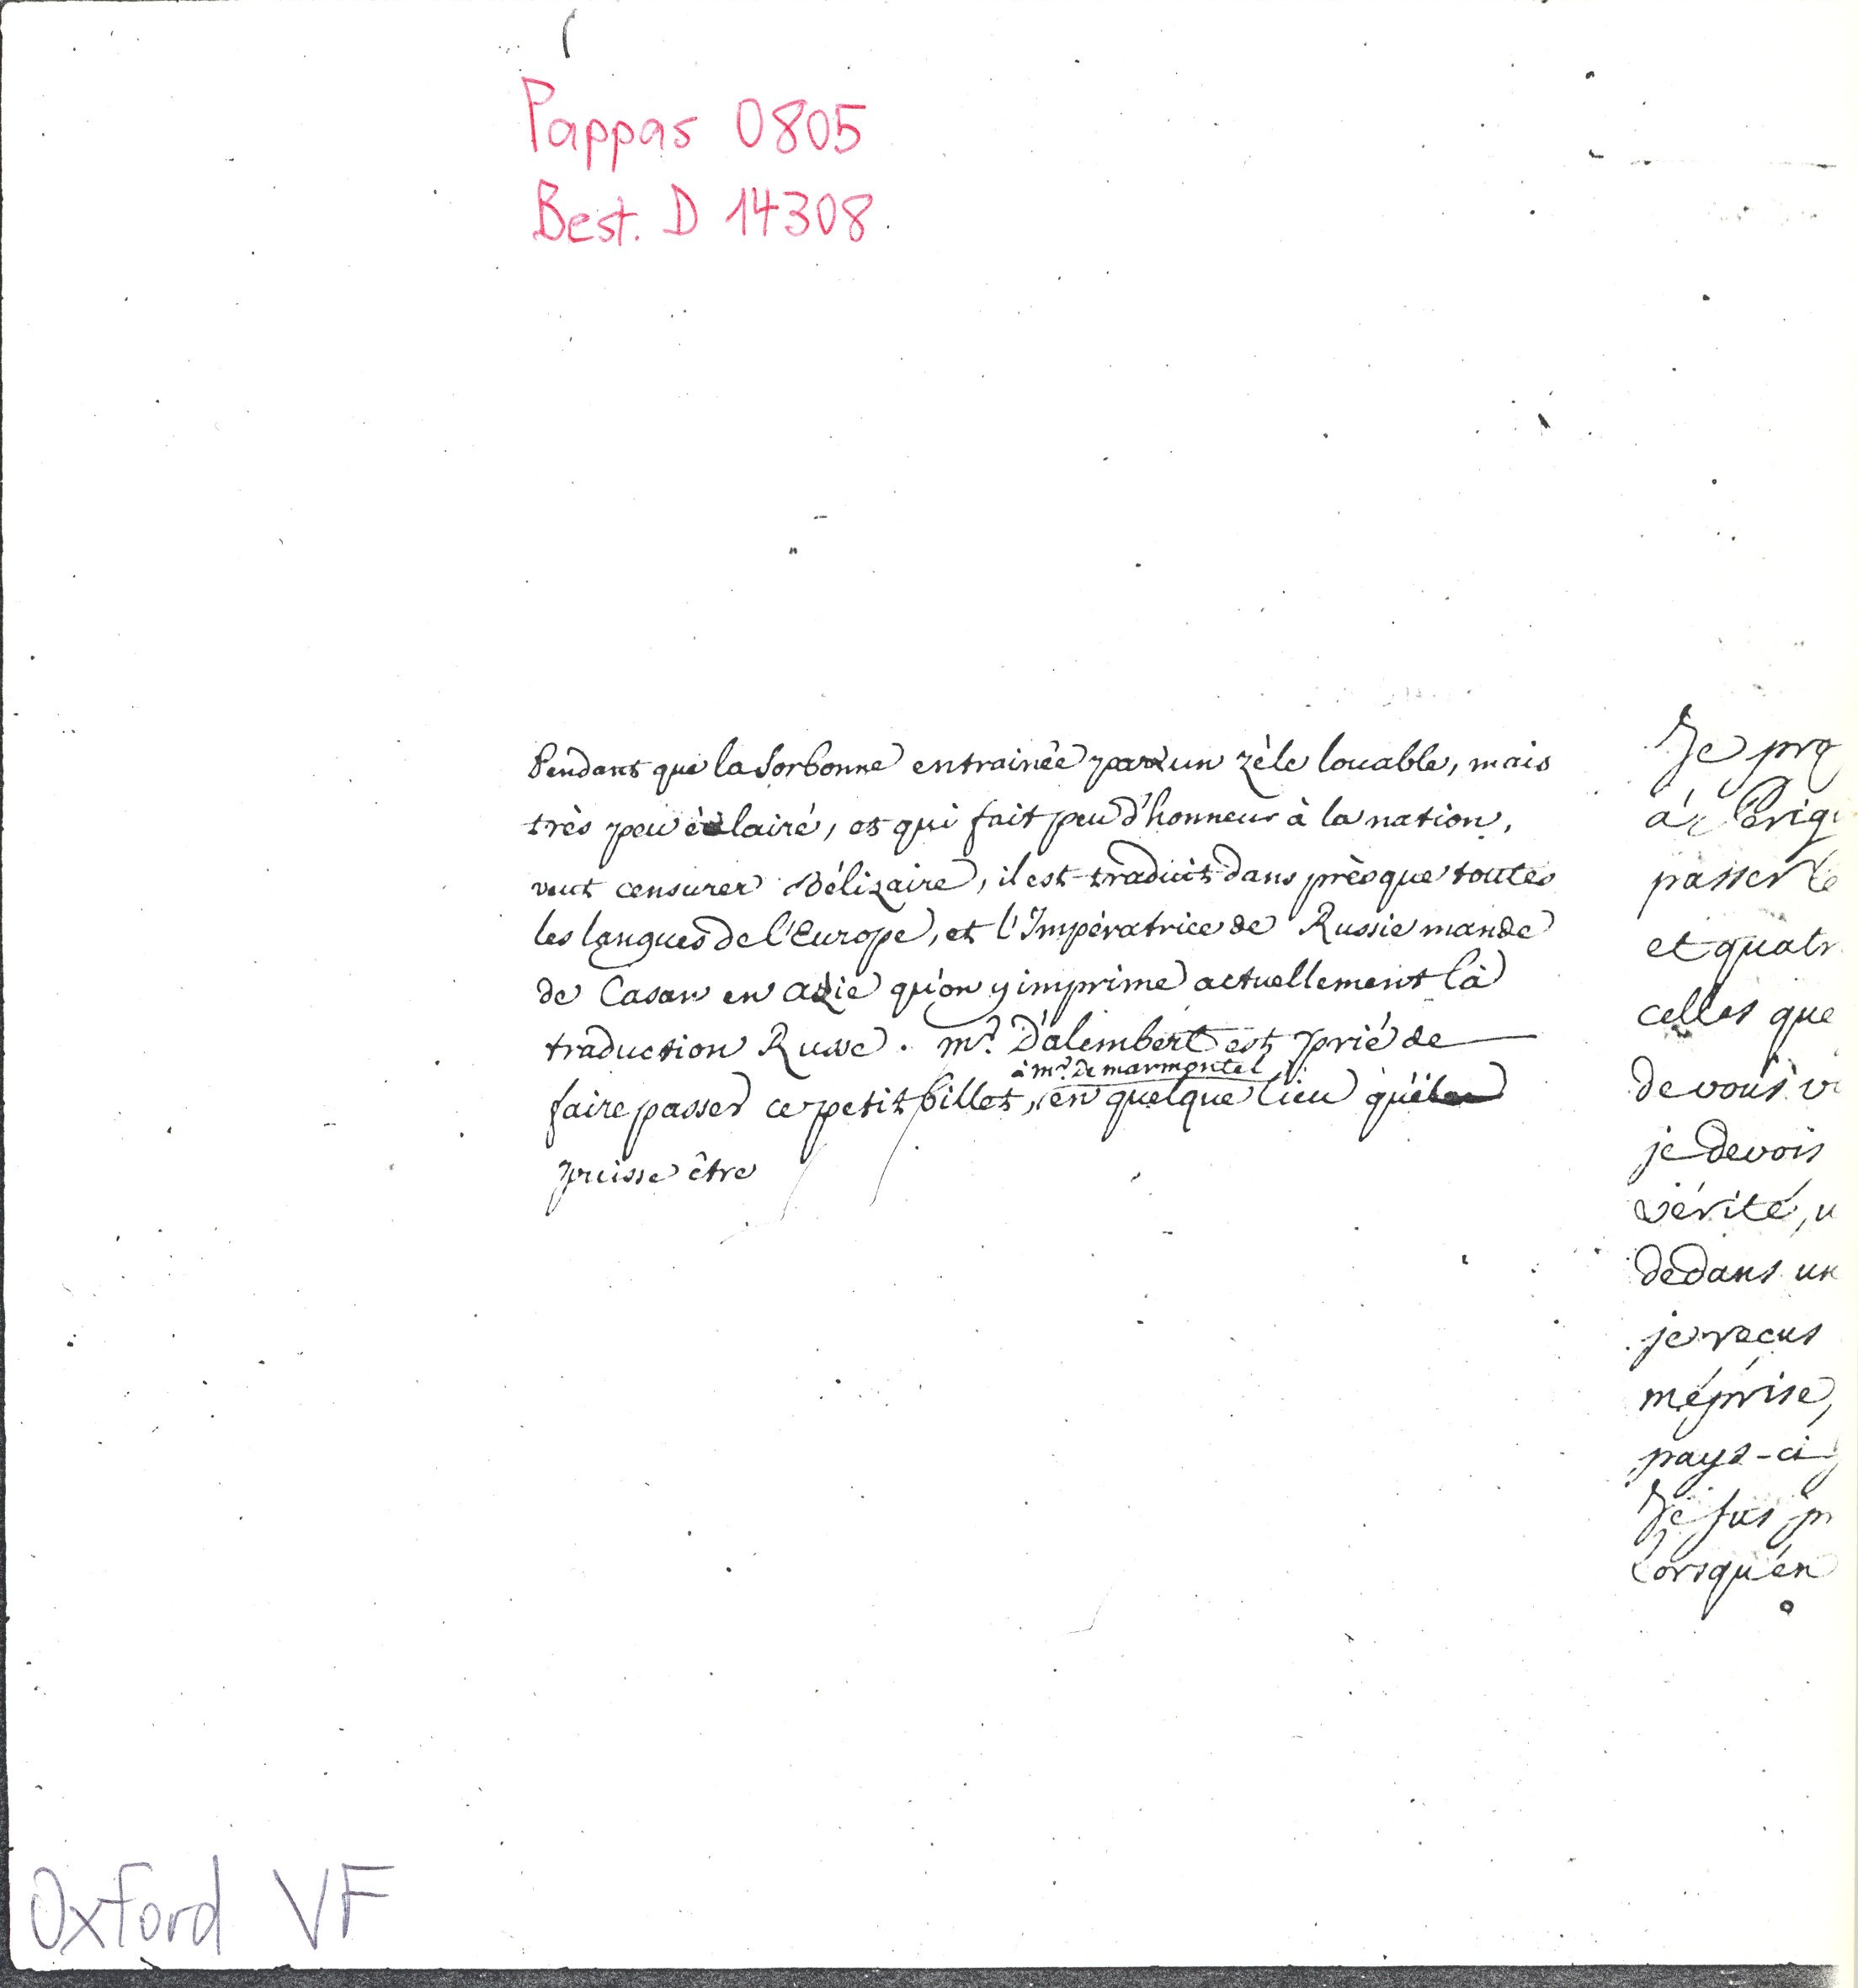 Pappas 0805
Best. D 14308
Pendant que la Sorbonne entrainée par un zèle louable, mais
très peu éclairé, et qui fait peu d'honneur à la nation,
veut censurer Bélizaire, il est traduit dans prèsque toutes
les langues de l'Europe, et l'Impératrice de Russie mande
de Casan en azie qu'on y imprime actuellement là
traduction Russe. mr. D'alembert est prié de
à mr. De marmontel
faire passer ce petit billet, en quelque lieu qu'il
puisse être
Je pro
à Périgu
passer le
et quatr
celles que
de vous v
je devois
vérité, u
dedans un
je recus
méprise,
pays-ci
Je fus pr
Lorsqu'en
Oxford VF